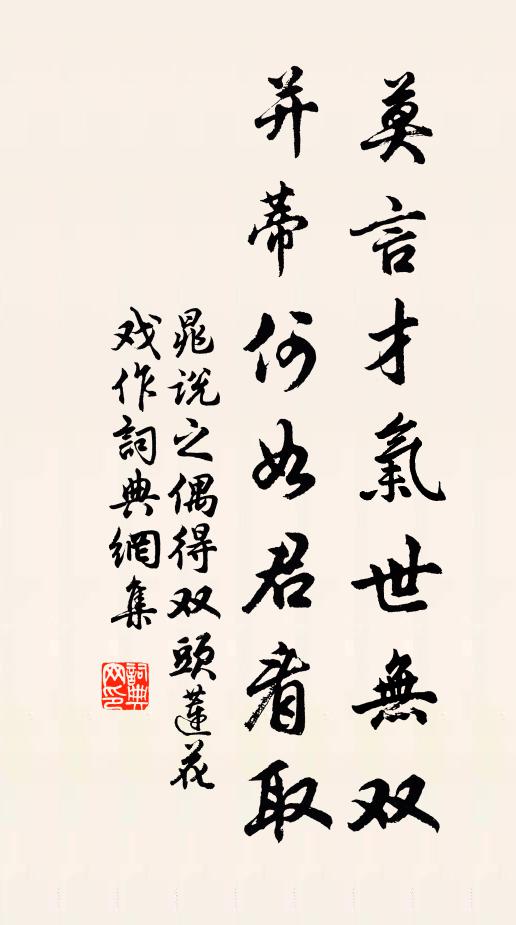 莫言才氣世無双
并蒂何如君看取
晁說之偶得双頭蓮花
戏作詞典網集
詞典網印